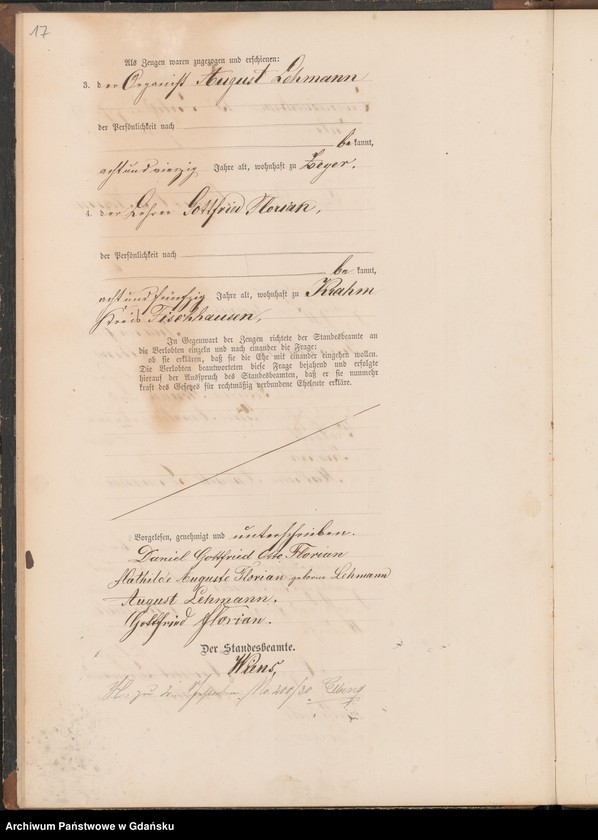 17
Als Zeugen waren zugezogen und erschienen:
3. der Organist August Lehmann
der Persönlichkeit nach
be kannt,
achtundvierzig Jahre alt, wohnhaft zu Zeyer.
4. der Lehrer Gottfried Florian,
der Persönlichkeit nach
be kannt,
achtundfünfzig Jahre alt, wohnhaft zu
Kreis Fischhausen,
In Gegenwart der Zeugen richtete der Standesbeamte an
die Verlobten einzeln und nach einander die Frage:
ob sie erklären, daß sie die Ehe mit einander eingehen wollen.
Die Verlobten beantworteten diese Frage bejahend und erfolgte
hierauf der Ausspruch des Standesbeamten, daß er sie nunmehr
kraft des Gesetzes für rechtmäßig verbundene Eheleute erkläre.
Vorgelesen, genehmigt und unterschrieben.
Daniel Gottfried Otto Florian
Mathilde Auguste Florian geborne Lehmann
August Lehmann.
Gottfried Florian.
Der Standesbeamte.
Wiens,
No. 200/30 Elbing
Archiwum Państwowe w Gdańsku